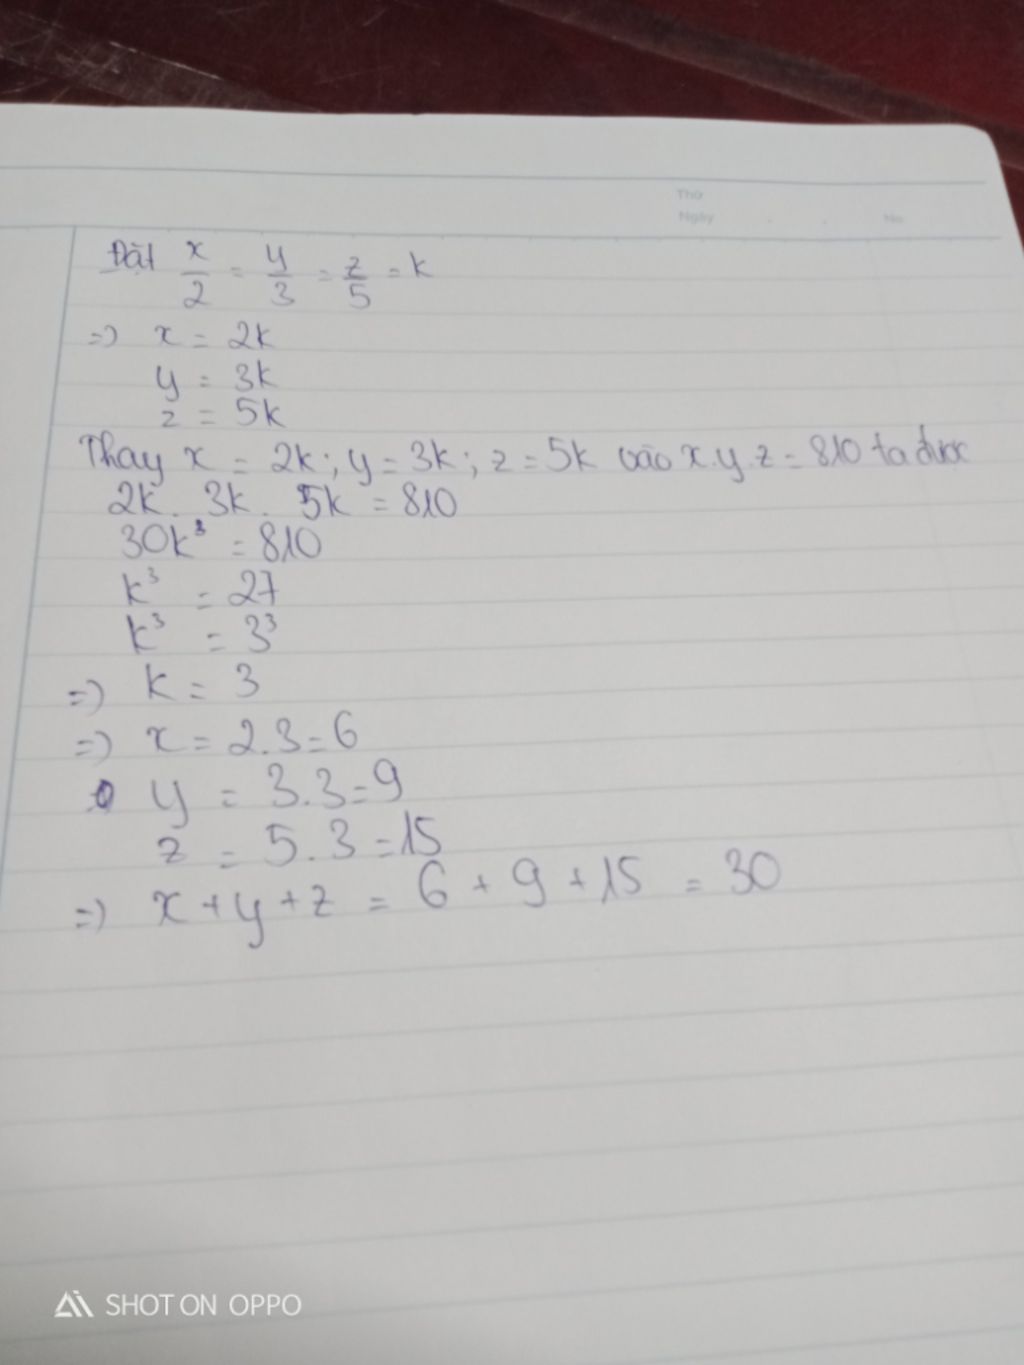 Thứ
Ngày . . No
Đặt x/2 = y/3 = z/5 = k
=) x = 2k
y = 3k
z = 5k
Thay x = 2k; y = 3k; z = 5k vào x.y.z = 810 ta được
2k. 3k. 5k = 810
30k³ = 810
k³ = 27
k³ = 3³
=) k = 3
=) x = 2.3 = 6
y = 3.3 = 9
z = 5.3 = 15
=) x + y + z = 6 + 9 + 15 = 30
SHOT ON OPPO